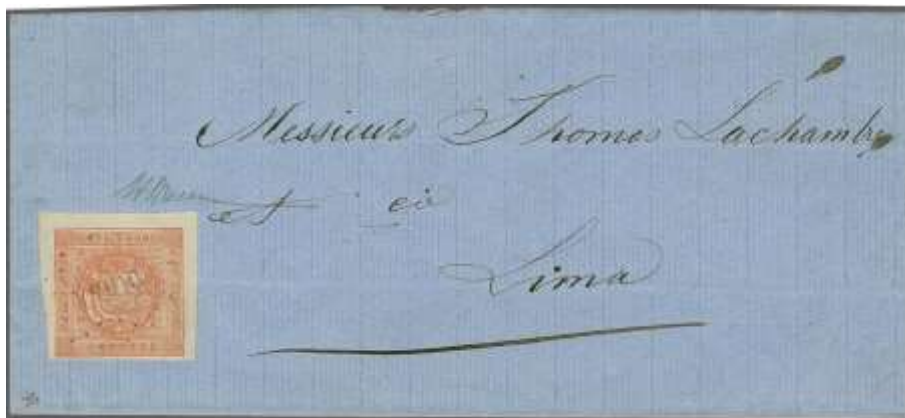 Messieurs Thomas Lachambre
et cie
Lima